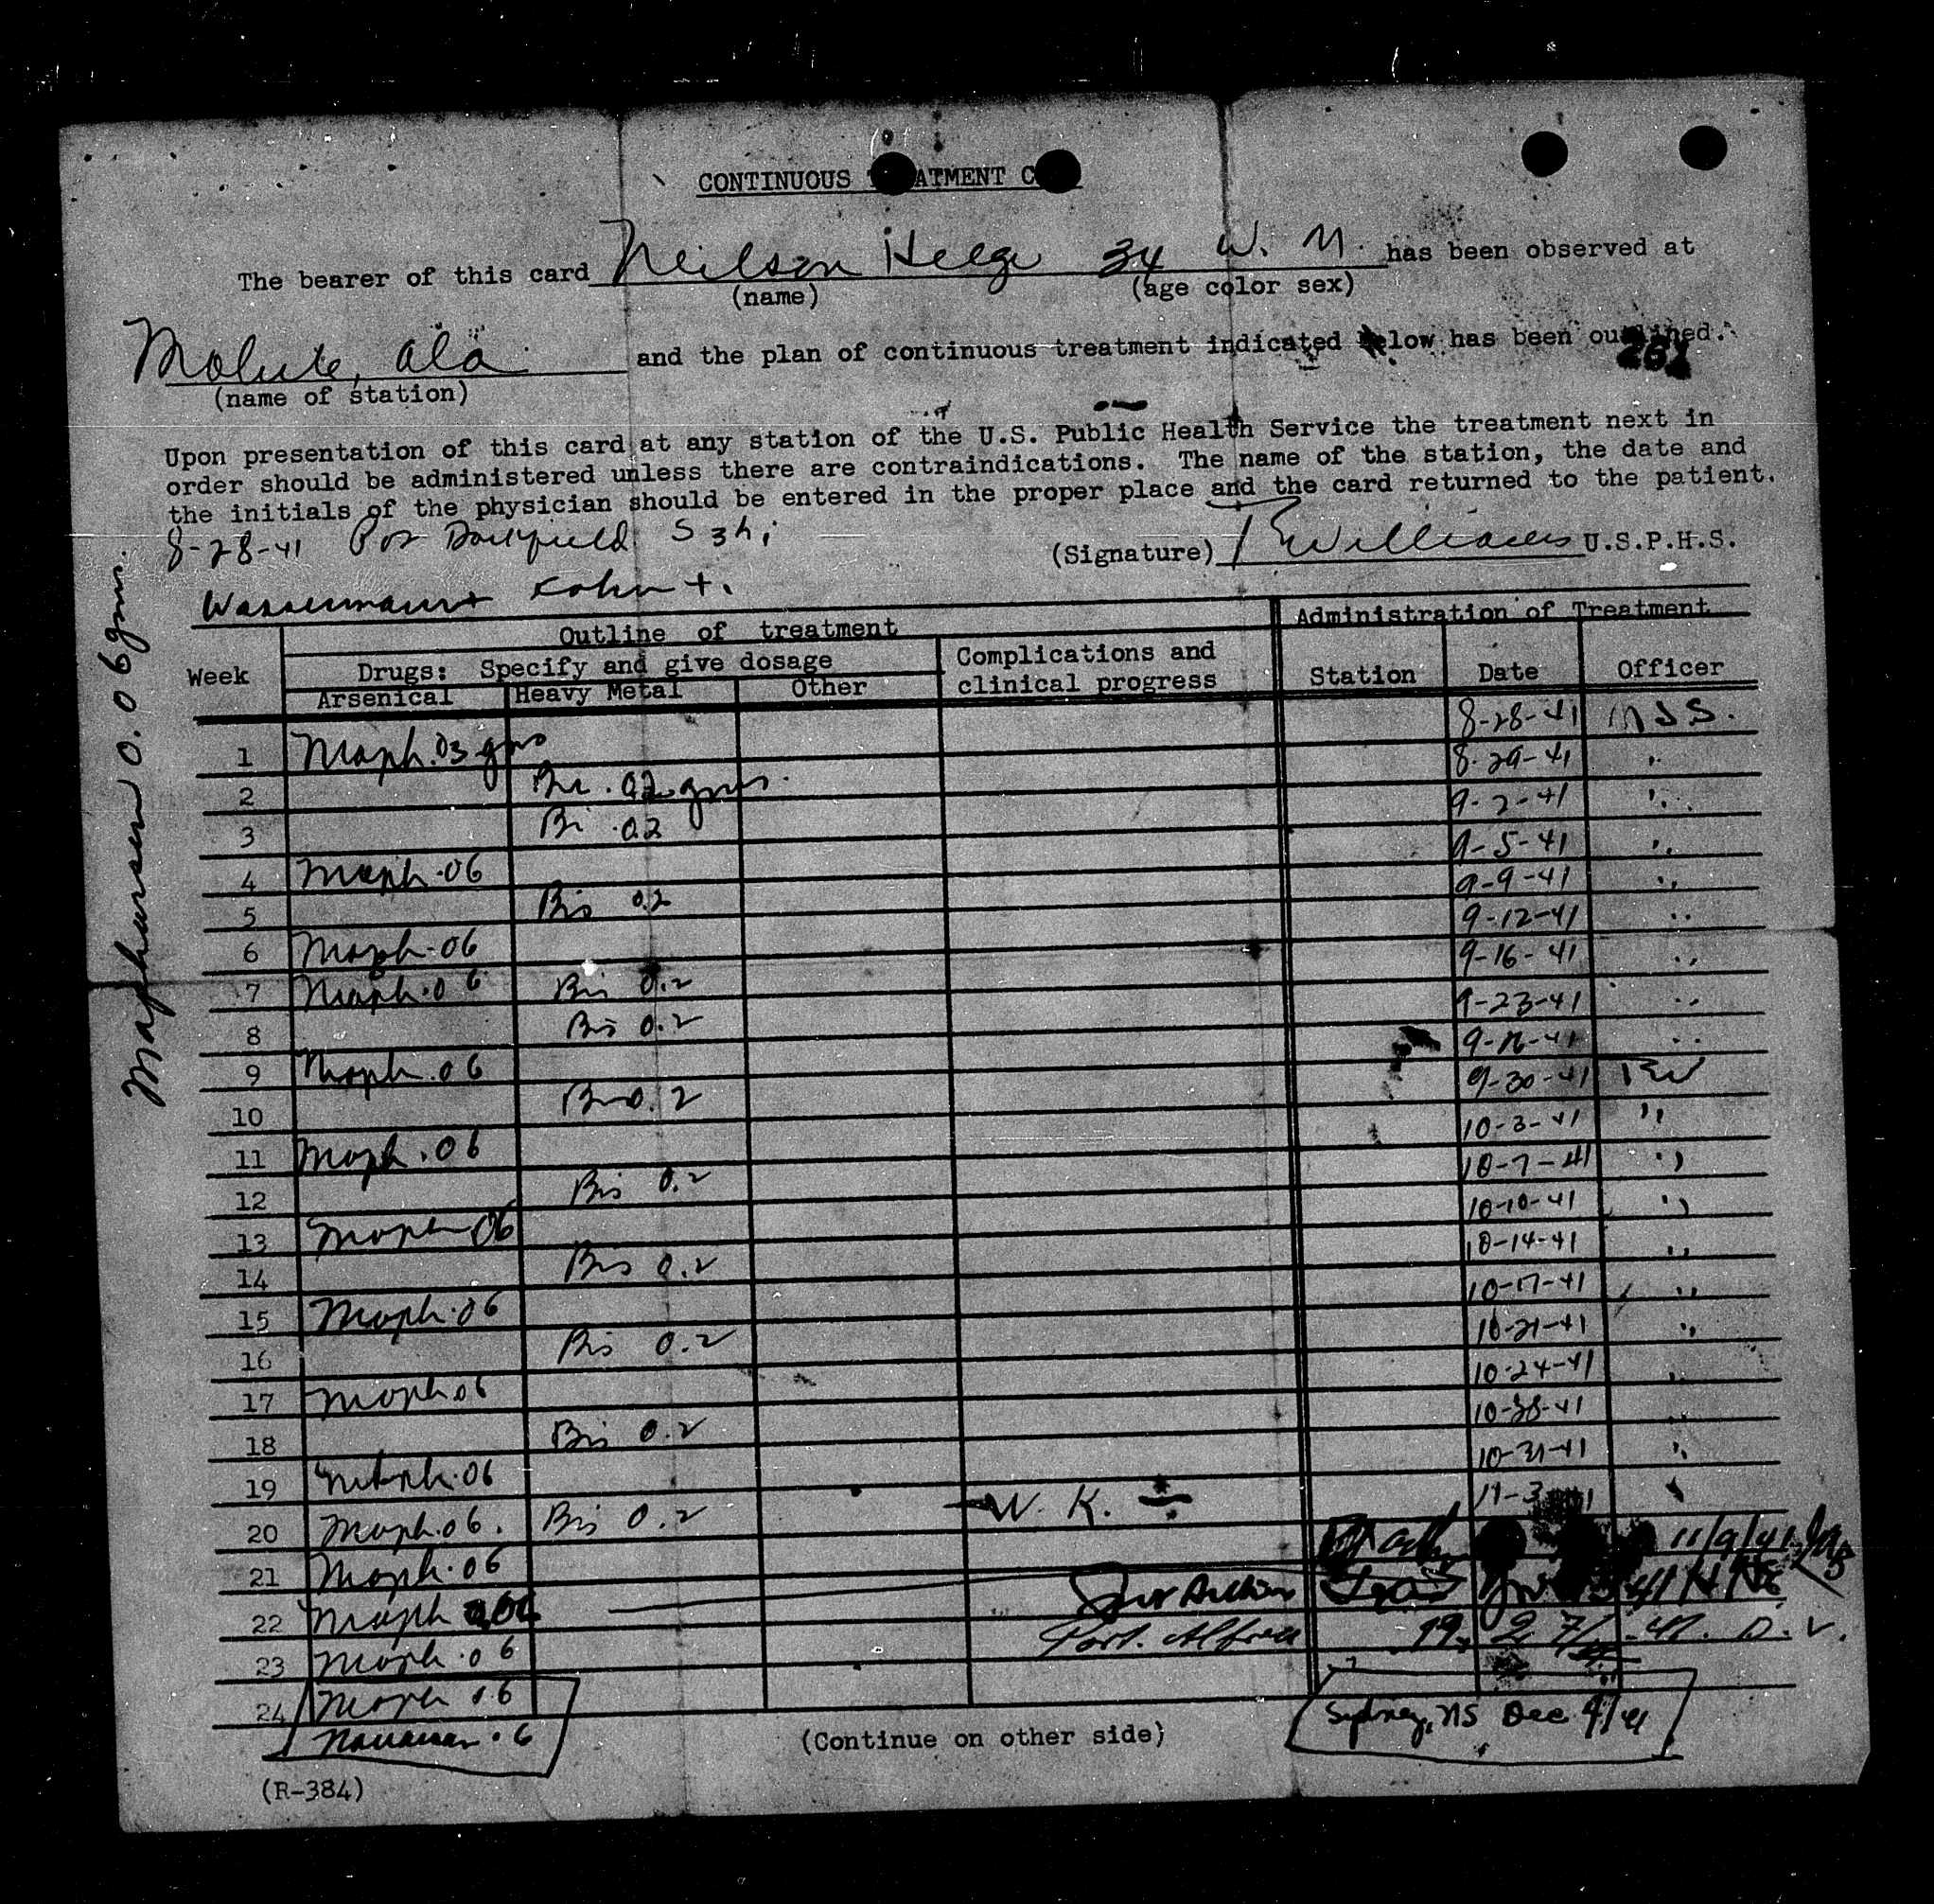 CONTINUOUS TREATMENT C
The bearer of this card Neilson Helge 34 W. M. has been observed at
(name) (age color sex)
Mobile, Ala. and the plan of continuous treatment indicated below has been outlined.
(name of station) 261
Upon presentation of this card at any station of the U.S. Public Health Service the treatment next in
order should be administered unless there are contraindications. The name of the station, the date and
the initials of the physician should be entered in the proper place and the card returned to the patient.
8-28-41 Pos Darkfield
(Signature) Williams U.S.P.H.S.
Wassermann+ Kahn +.
Mapharsen 0.06 gm.
Outline of treatment Administration of Treatment
Week Drugs: Specify and give dosage Complications and clinical progress Station Date Officer
Arsenical Heavy Metal Other
1 Maph .03 gms 8-28-41 MSS.
2 .02 gms. 8-29-41 "
3 Bi .02 9-2-41 "
4 Maph .06 9-5-41 "
5 Bis 0.2 9-9-41 "
6 Maph .06 9-12-41 "
7 Maph .06 Bis 0.2 9-16-41 "
8 Bis 0.2 9-23-41 "
9 Maph .06 9-26-41 "
10 Bis 0.2 9-30-41 RW
11 Maph .06 10-3-41 "
12 Bis 0.2 10-7-41 "
13 Maph .06 10-10-41 "
14 Bis 0.2 10-14-41 "
15 Maph .06 10-17-41 "
16 Bis 0.2 10-21-41 "
17 Maph .06 10-24-41 "
18 Bis 0.2 10-28-41 "
19 Maph .06 10-31-41 "
20 Maph .06. Bis 0.2 W. K. 11-3 41 "
21 Maph .06 11/9/41
22 Maph 0.06 Port Arthur Texas 41
23 Maph .06 Port. Alfred 41. D. V.
24 Maph .06
.6 Sydney, NS Dec 9/41
(Continue on other side)
(R-384)